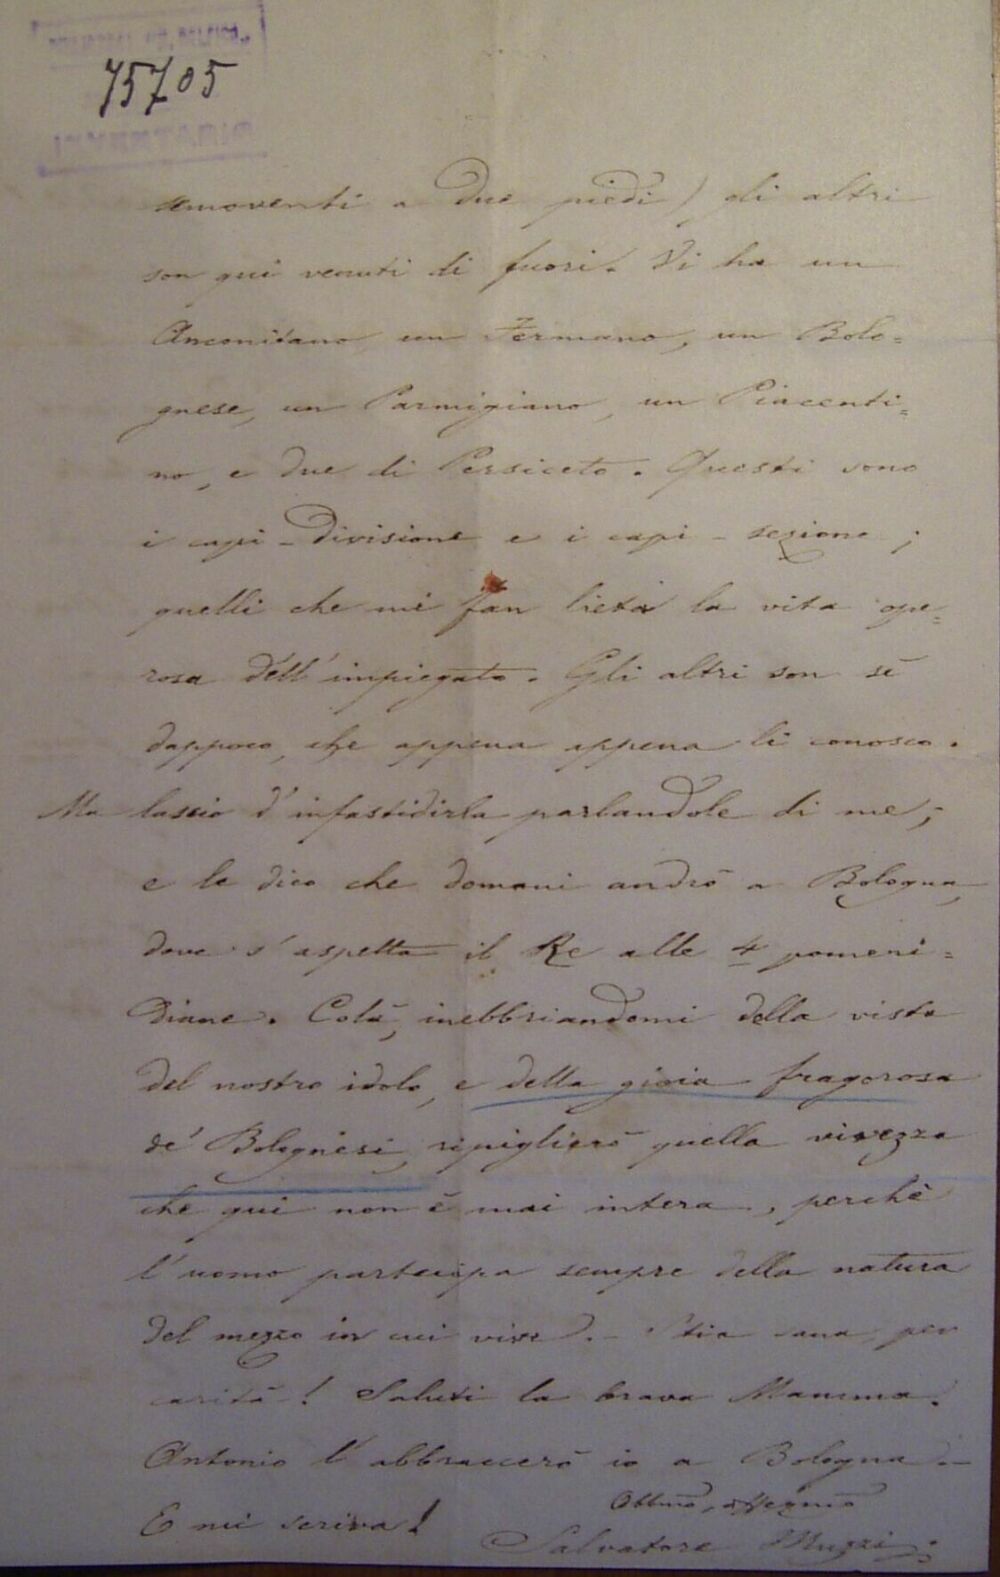 75705
semoventi a due piedi) gli altri
son qui venuti di fuori. Vi ha un
Anconitano, un Fermano, un Bolo=
gnese, un Parmigiano, un Piacenti=
no, e due di Persiceto. Questi sono
i capi-divisione e i capi-sezione;
quelli che mi fan lieta la vita ope=
rosa dell'impiegato. Gli altri son sì
dappoco, che appena appena li conosco.
Ma lascio d'infastidirla parlandole di me;
e le dico che domani andrò a Bologna,
dove s'aspetta il Re alle 4 pomeri=
diane. Colà, inebbriandomi della vista
del nostro idolo, e della gioia fragorosa
de' Bolognesi, ripiglierò quella vivezza
che qui non è mai intera, perchè
l'uomo partecipa sempre della natura
del mezzo in cui vive. - Stia sana, per
carità! Saluti la brava Mamma.
Antonio l'abbraccerò io a Bologna. -
E mi scriva!
Obbmo, affezmo
Salvatore Muzzi